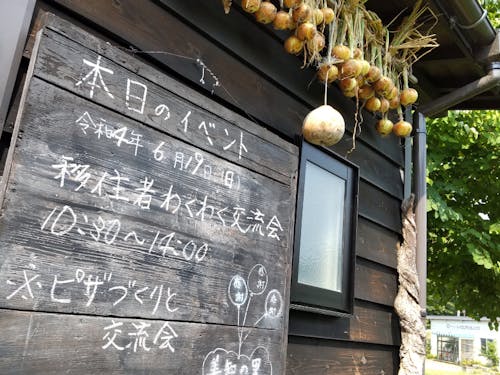 本日のイベント
令和4年6月19日(日)
移住者わくわく交流会
10:30〜14:00
※ピザづくりと
交流会